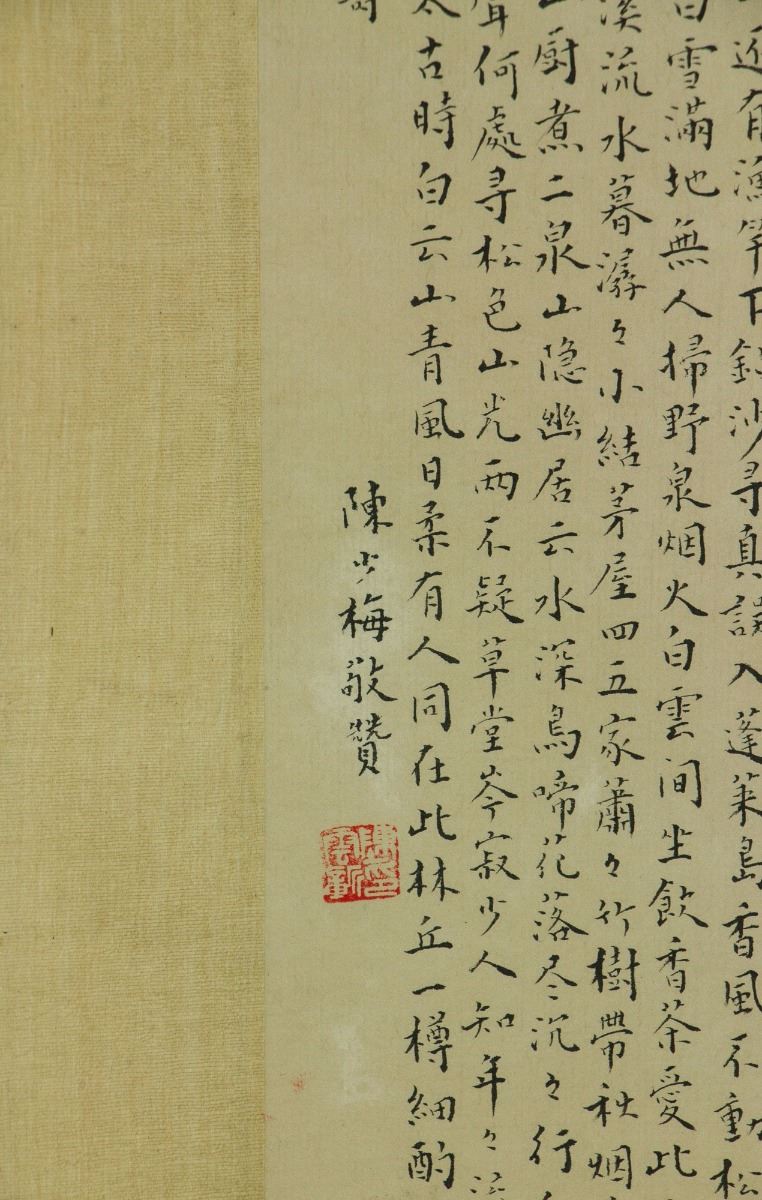 近有漁竿下釣沙尋真誤入蓬萊島香風不動松
白雪滿地無人掃野泉烟火白雲间坐飲香茶愛此
溪流水暮潺々小結茅屋四五家蕭々竹樹帶秋烟
厨煮二泉山隐幽居云水深鳥啼花落尽沉々行
聲何處寻松色山光两不疑草堂岑寂少人知年々
太古時白云山青風日柔有人同在此林丘一樽細酌
陳少梅敬贊
陳雲彰印